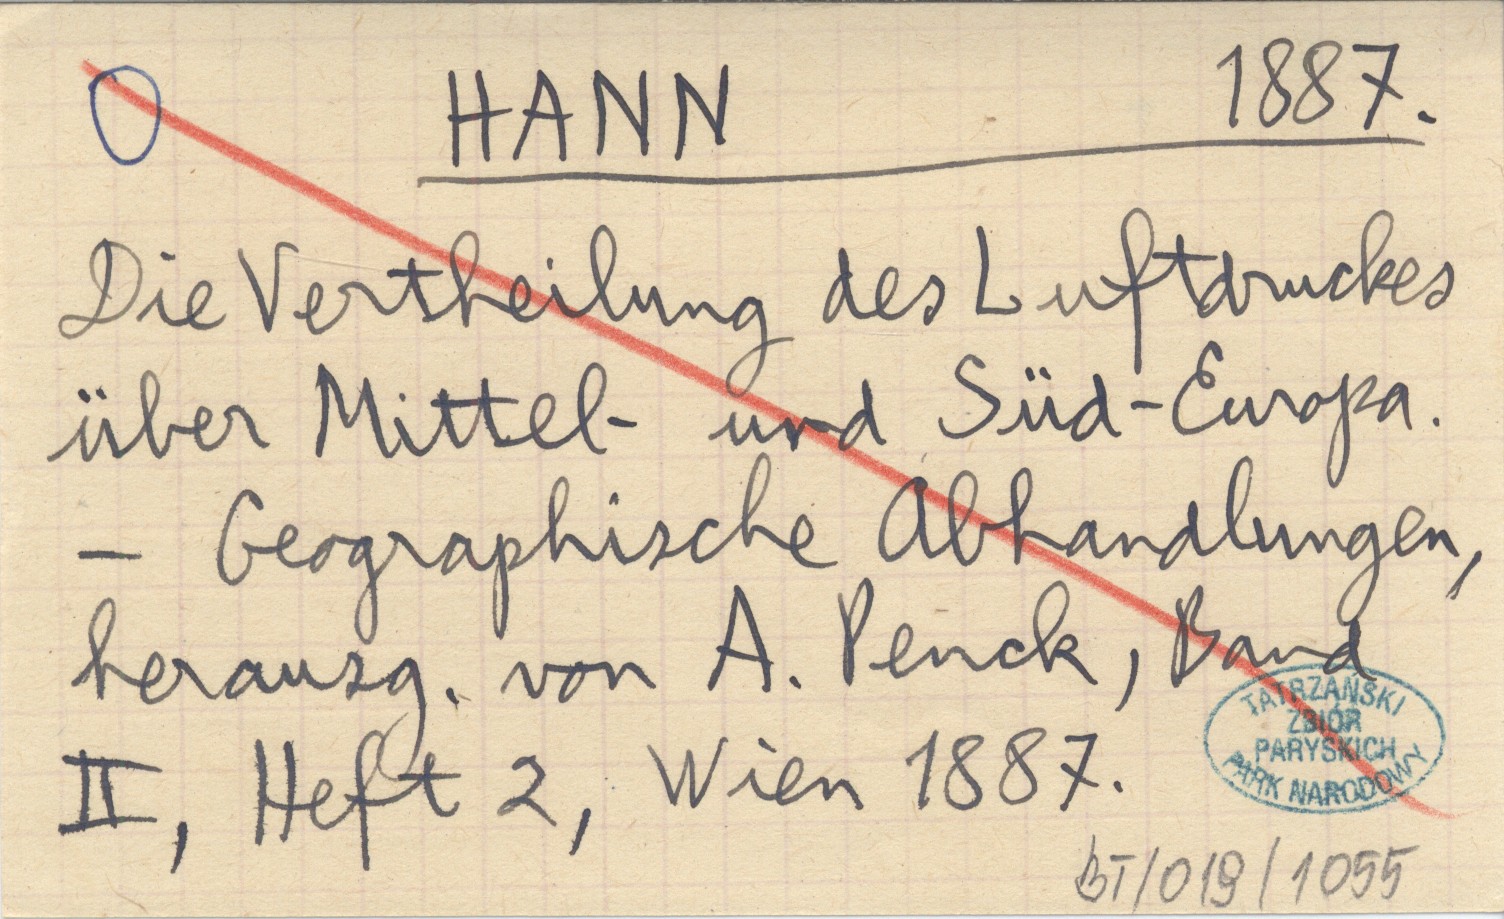 O HANN 1887.
Die Vertheilung des Luftdruckes
über Mittel- und Süd-Europa.
— Geographische Abhandlungen,
herausg. von A. Penck, Band
II, Heft 2, Wien 1887.
TATRZAŃSKI
ZBIÓR
PARYSKICH
PARK NARODOWY
BT/019/1055